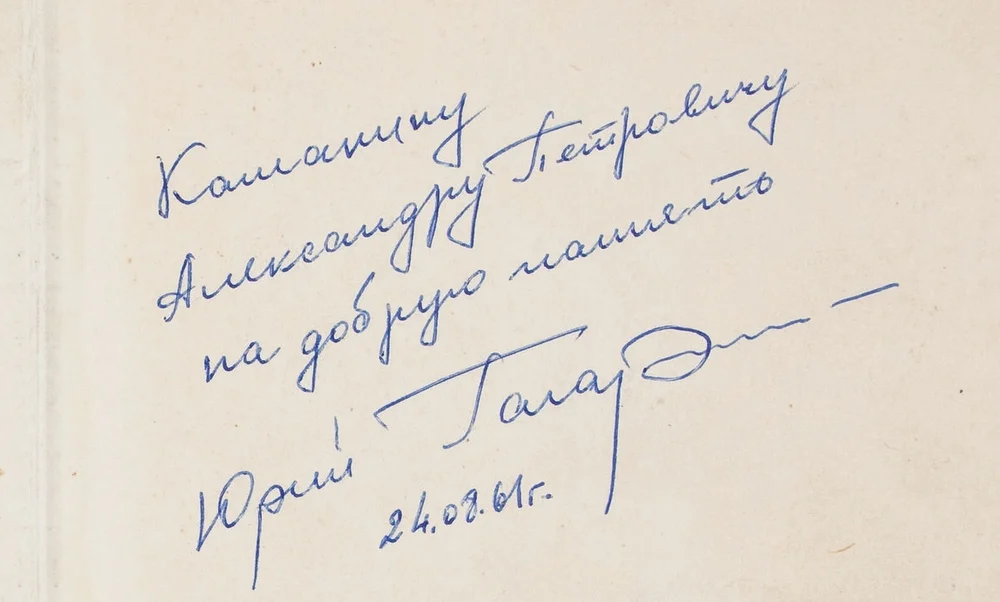 Каманину
Александру Петровичу
на добрую память
Юрий Гагарин
24.08.61г.